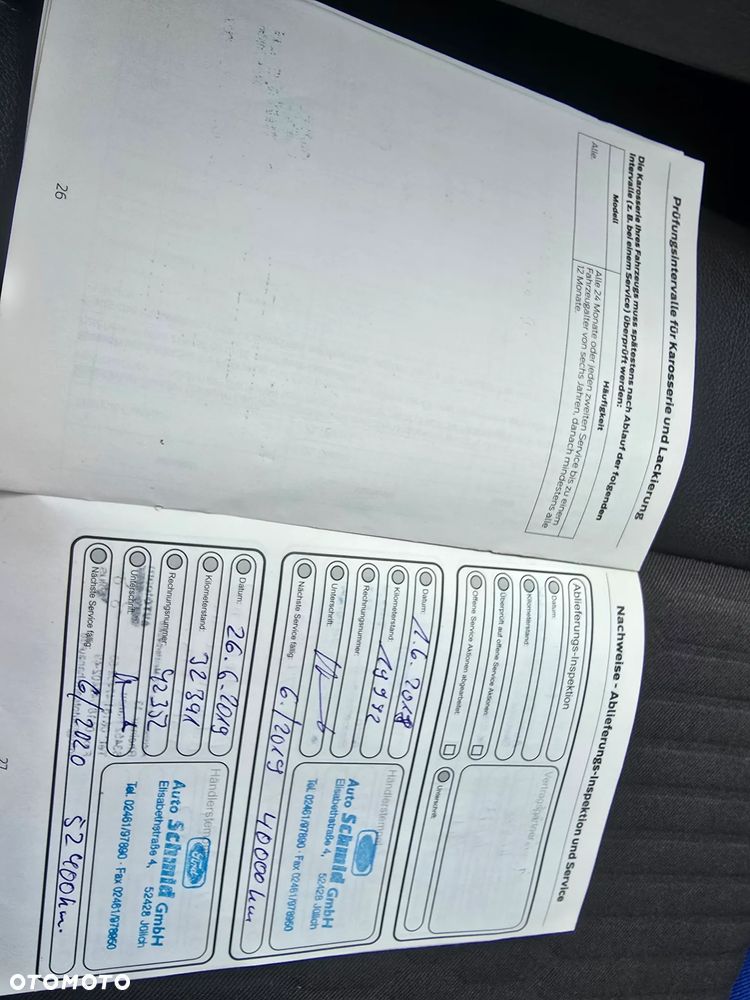 Prüfungsintervalle für Karosserie und Lackierung
Die Karosserie Ihres Fahrzeugs muss spätestens nach Ablauf der folgenden
Intervalle (z. B. bei einem Service) überprüft werden:
Modell
Häufigkeit
Alle.
Alle 24 Monate oder jeden zweiten Service bis zu einem
Fahrzeugalter von sechs Jahren, danach mindestens alle
12 Monate.
26
Nachweise - Ablieferungs-Inspektion und Service
Ablieferungs-Inspektion
Datum:
Kilometerstand:
Überprüft auf offene Service Aktionen:
Offene Service Aktionen abgearbeitet:
Unterschrift:
Datum: 1.6.2018
Kilometerstand: 19992
Rechnungsnummer:
Unterschrift:
Nächste Service fällig: 6./2019 40000 km
Auto Schmid GmbH
Elisabethstraße 4, 52428 Jülich
Tel. 02461/97890 · Fax 02461/978960
Datum: 26.6.2019
Kilometerstand: 32391
Rechnungsnummer: 42352
Unterschrift:
Nächste Service fällig: 6/2020 52400 km.
Ford
Auto Schmid GmbH
Elisabethstraße 4, 52428 Jülich
Tel. 02461/97890 · Fax 02461/978960
27
OTOMOTO